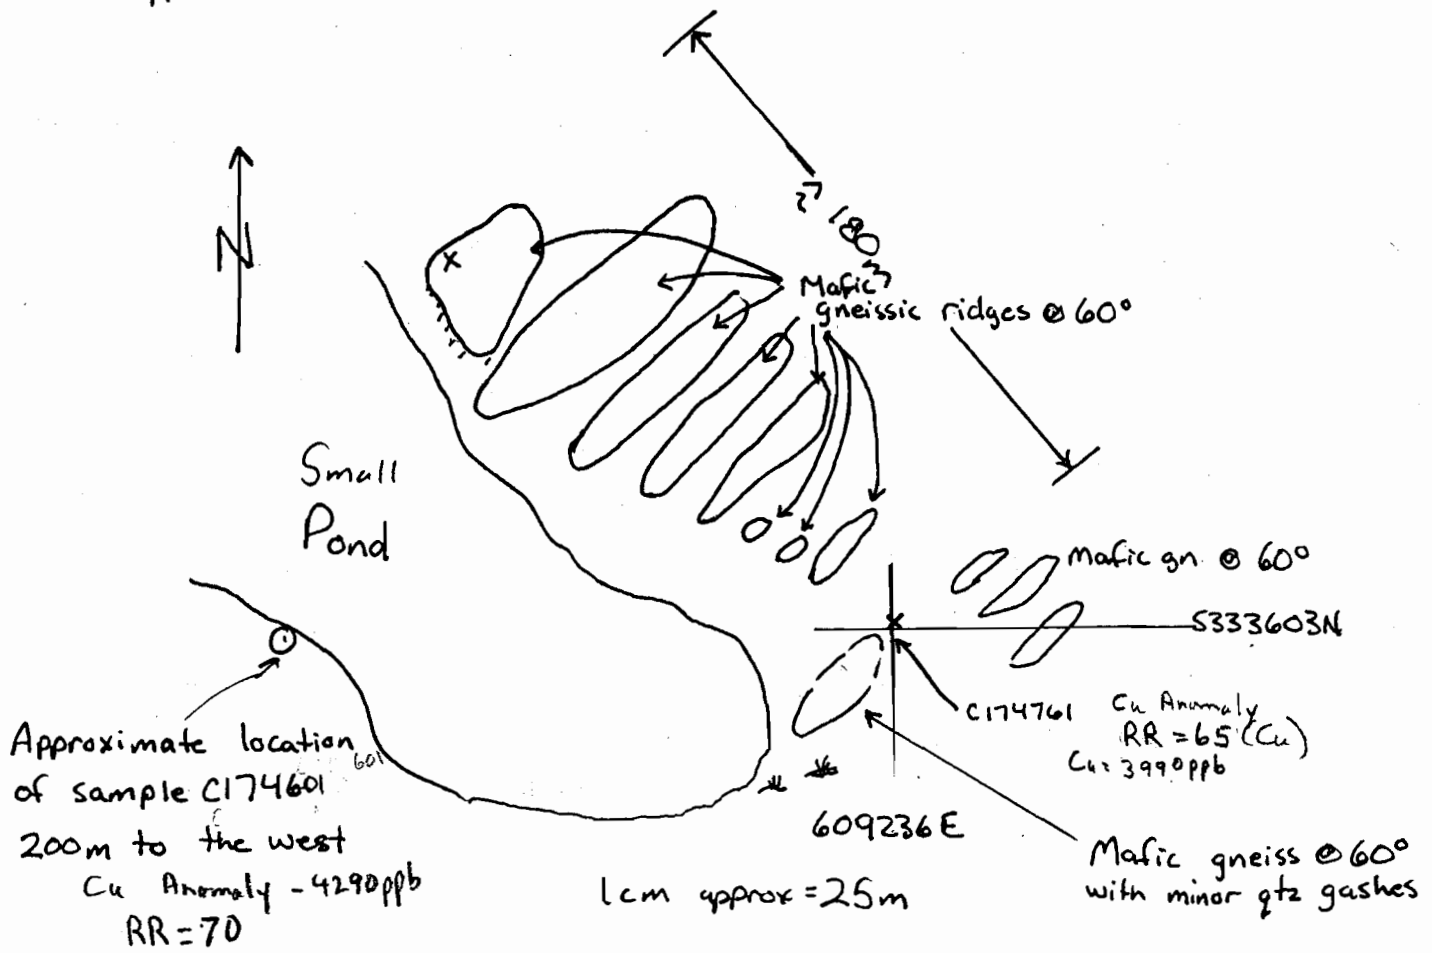 N
~ 180m
Mafic
gneissic ridges @ 60°
Small
Pond
Mafic gn. @ 60°
5333603N
C174761
Cu Anomaly
RR = 65 (Cu)
Cu = 3990ppb
609236E
Mafic gneiss @ 60°
with minor qtz gashes
Approximate location
601
of sample C174601
200m to the west
Cu Anomaly - 4290ppb
RR = 70
1cm approx = 25m